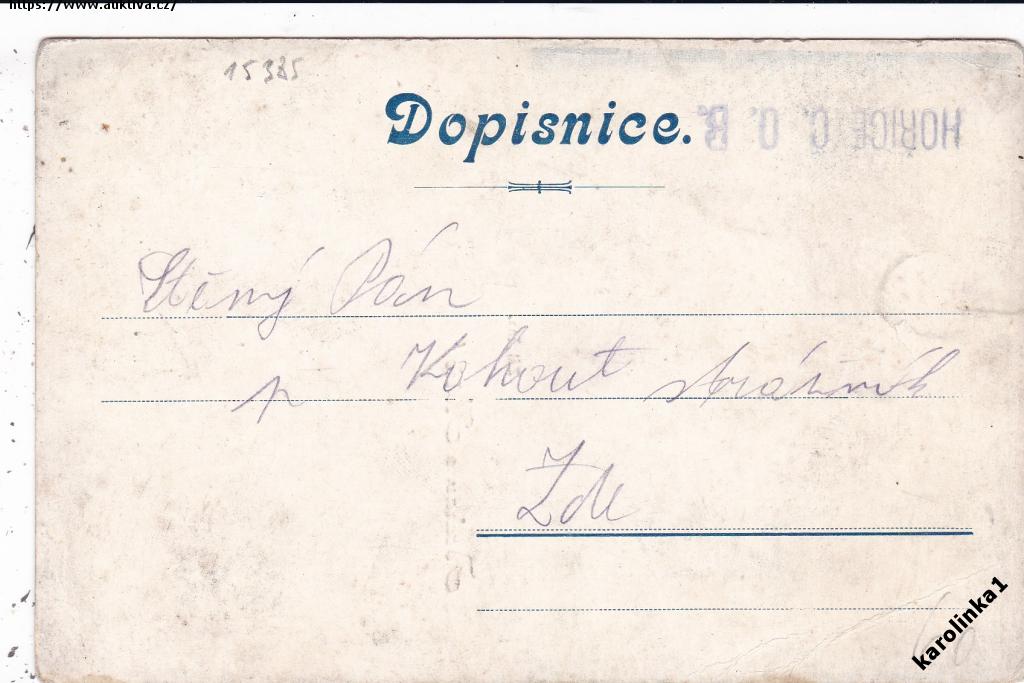 https://www.auktiva.cz/
15385
Dopisnice.
HOŘICE C. O. B.
Ctěný Pán
p Kohout strážník
Zde
karolinka1